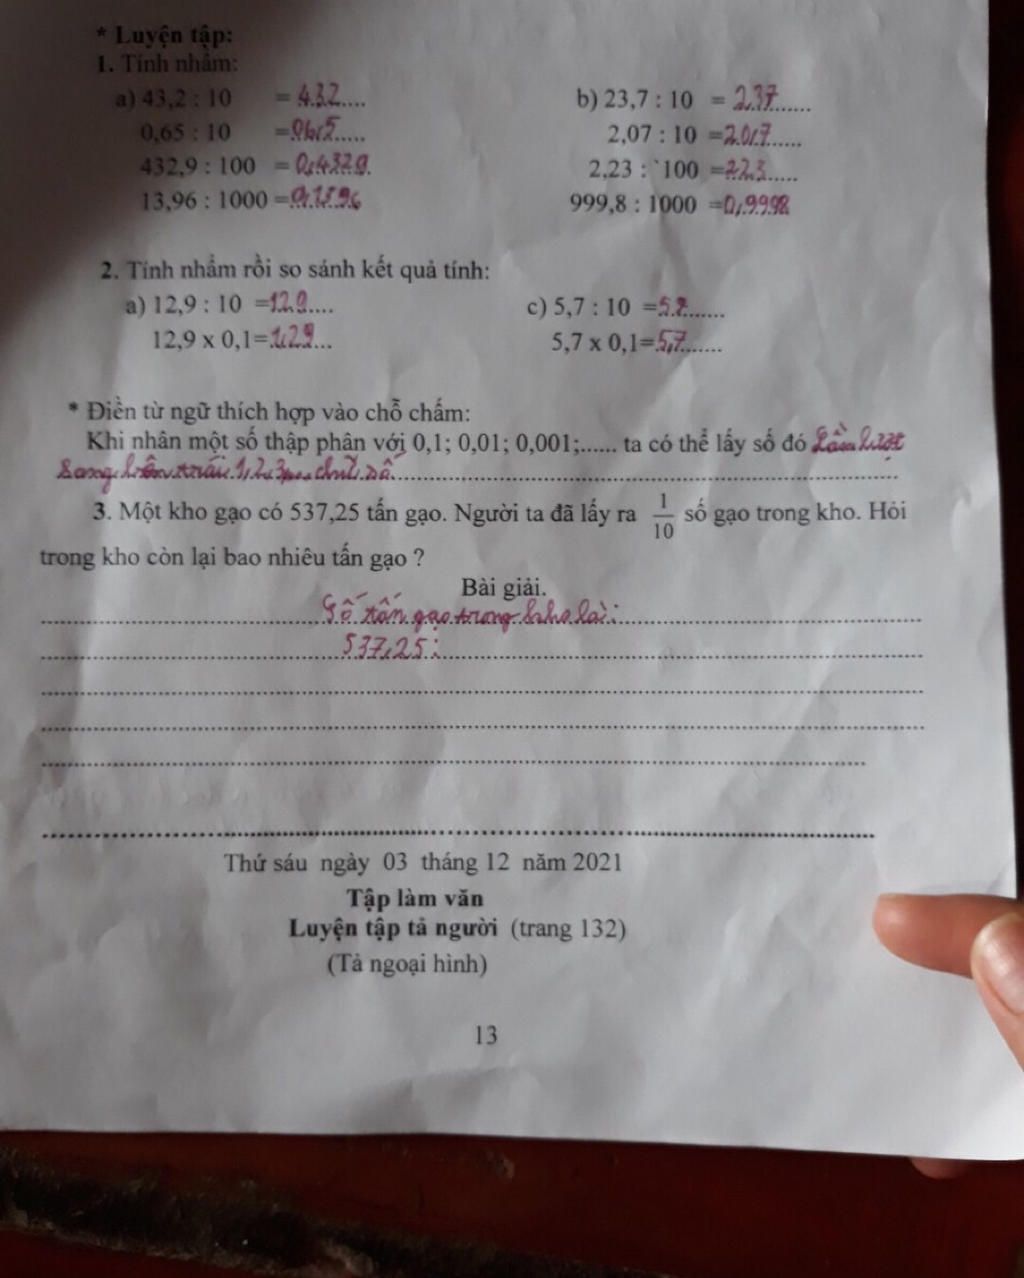 * Luyện tập:
1. Tính nhẩm:
a) 43,2 : 10 = 4.32.... b) 23,7 : 10 = 2,37.......
0,65 : 10 =.......... 2,07 : 10 =2.0,7......
432,9 : 100 = 0,4329. 2,23 : `100 =2.2,3.....
13,96 : 1000 = 999,8 : 1000 =0,9998
2. Tính nhẩm rồi so sánh kết quả tính:
a) 12,9 : 10 =12.9.... c) 5,7 : 10 =
12,9 x 0,1=1,29... 5,7 x 0,1=5,7......
* Điền từ ngữ thích hợp vào chỗ chấm:
Khi nhân một số thập phân với 0,1; 0,01; 0,001;...... ta có thể lấy số đó Lần lượt
sang bên trái 1,2,3... chữ số
3. Một kho gạo có 537,25 tấn gạo. Người ta đã lấy ra 1/10 số gạo trong kho. Hỏi
trong kho còn lại bao nhiêu tấn gạo ?
Bài giải.
Số tấn gạo trong kho lài:
537,25:
Thứ sáu ngày 03 tháng 12 năm 2021
Tập làm văn
Luyện tập tả người (trang 132)
(Tả ngoại hình)
13